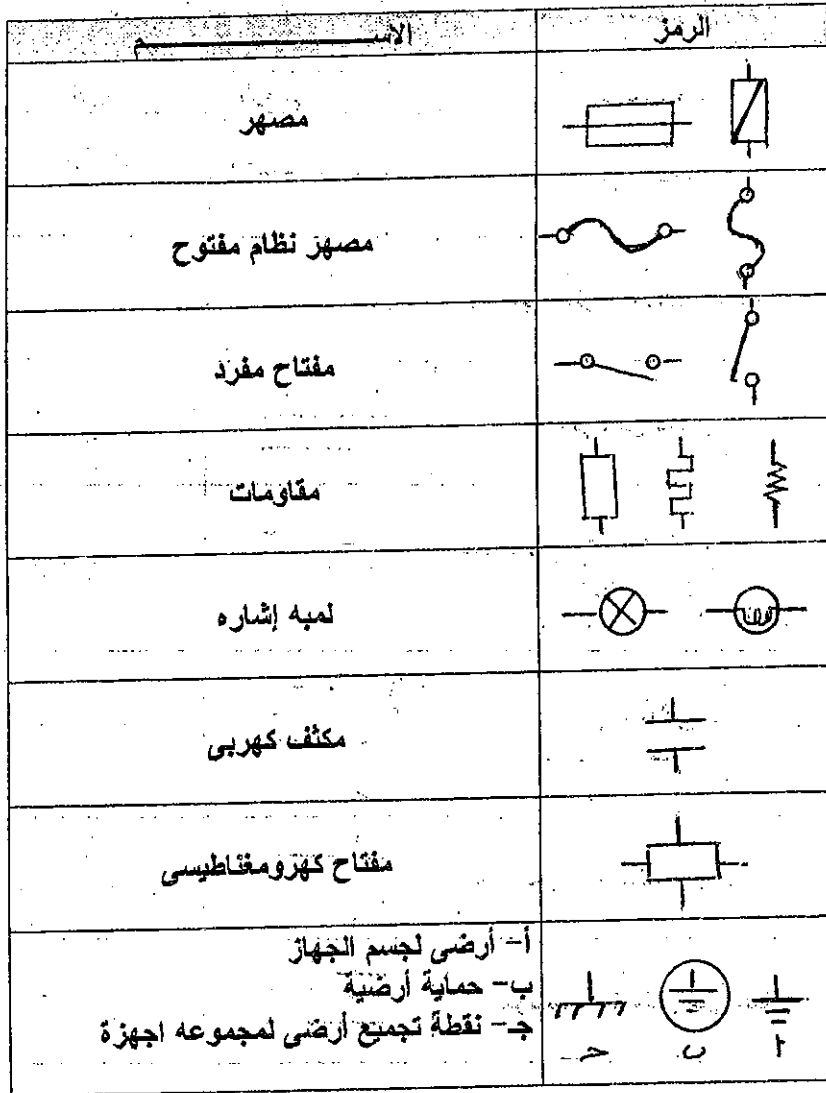 الرمز الاســـــــم
مصهر
مصهر نظام مفتوح
مفتاح مفرد
مقاومات
لمبه إشاره
مكثف كهربى
مفتاح كهرومغناطيسى
أ- أرضى لجسم الجهاز
ب- حماية أرضية
جـ- نقطة تجميع أرضى لمجموعه اجهزة
أ ب حـ